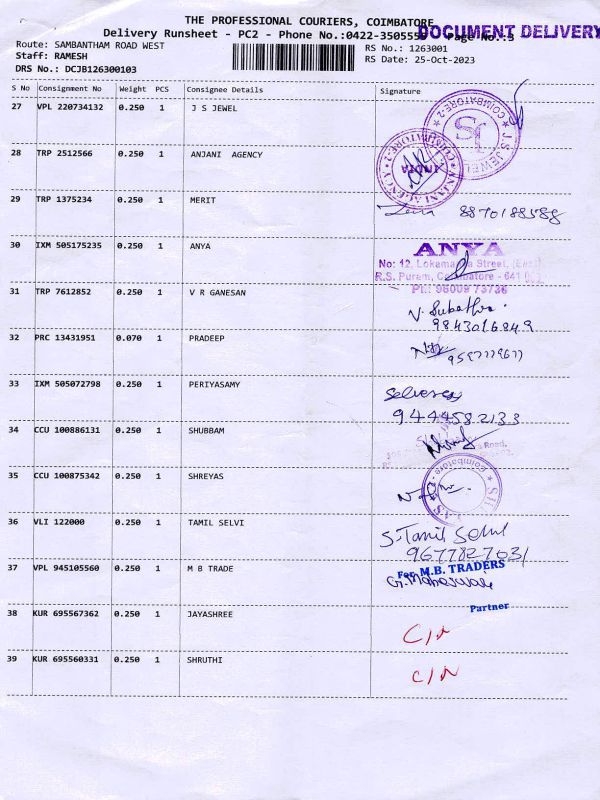 THE PROFESSIONAL COURIERS, COIMBATORE
Delivery Runsheet - PC2 - Phone No.:0422-3505559 Page No.:3
DOCUMENT DELIVERY
Route: SAMBANTHAM ROAD WEST
RS No.: 1263001
Staff: RAMESH
RS Date: 25-Oct-2023
DRS No.: DCJB126300103
S No Consignment No Weight PCS Consignee Details Signature
27 VPL 220734132 0.250 1 J S JEWEL
COIMBATORE-2 J.S.JEWEL
28 TRP 2512566 0.250 1 ANJANI AGENCY
COIMBATORE-2 ANJANI AGENCY INDIA
29 TRP 1375234 0.250 1 MERIT
8870188588
30 IXM 505175235 0.250 1 ANYA
ANYA
No: 12, Street,
R.S. Puram, Coimbatore - 641
PH: 98009 73736
31 TRP 7612852 0.250 1 V R GANESAN
V. Subathra
9843016849
32 PRC 13431951 0.070 1 PRADEEP
33 IXM 505072798 0.250 1 PERIYASAMY
9444582133
34 CCU 100886131 0.250 1 SHUBBAM
Road,
35 CCU 100875342 0.250 1 SHREYAS
Coimbatore
36 VLI 122000 0.250 1 TAMIL SELVI
S. Tamil Selvi
9677827031
37 VPL 945105560 0.250 1 M B TRADE
For M.B. TRADERS
G. Maheswari
Partner
38 KUR 695567362 0.250 1 JAYASHREE
C/N
39 KUR 695560331 0.250 1 SHRUTHI
C/N